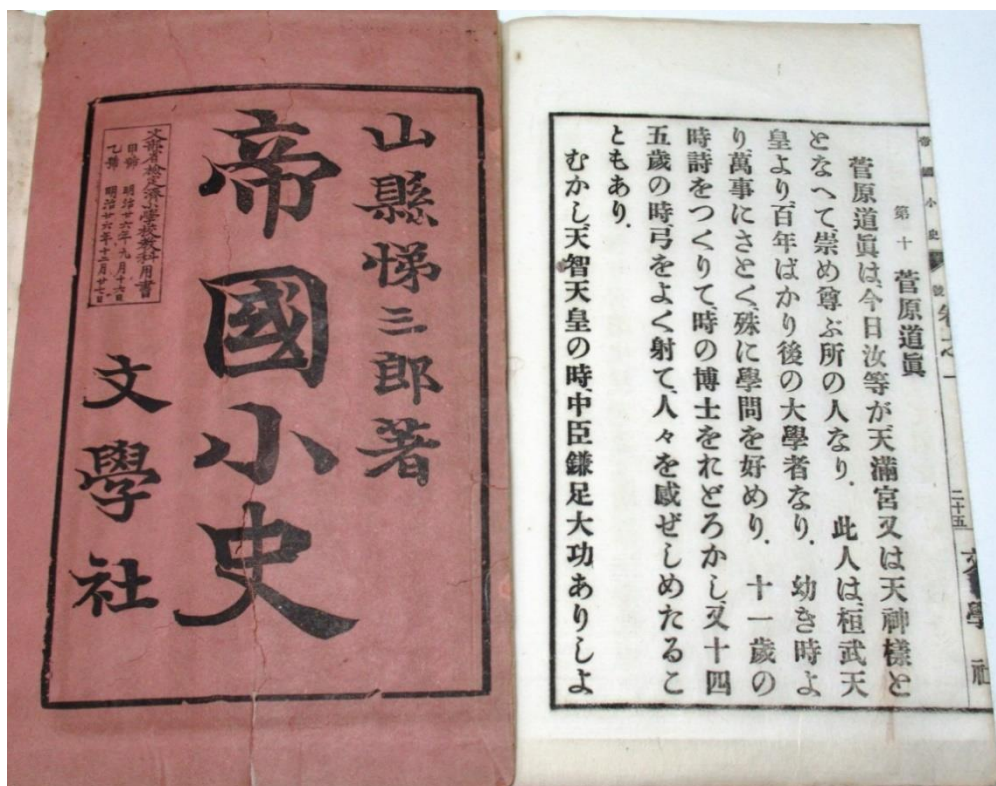 山縣悌三郎著
帝國小史
文部省檢定濟小學校教科用書
甲號 明治廿六年九月十六日
乙號 明治廿六年十二月廿七日
文學社
帝國小史 號 卷之一 二十五 文學社
第十 菅原道眞
菅原道眞は、今日汝等が、天滿宮又は天神樣と
となへて崇め尊ぶ所の人なり．此人は、桓武天
皇より、百年ばかり後の大學者なり．幼き時よ
り、萬事にさとく、殊に學問を好めり．十一歲の
時、詩をつくりて、時の博士をおどろかし、又十四
五歲の時、弓をよく射て、人々を感ぜしめたるこ
ともあり．
むかし、天智天皇の時、中臣鎌足大功ありしよ